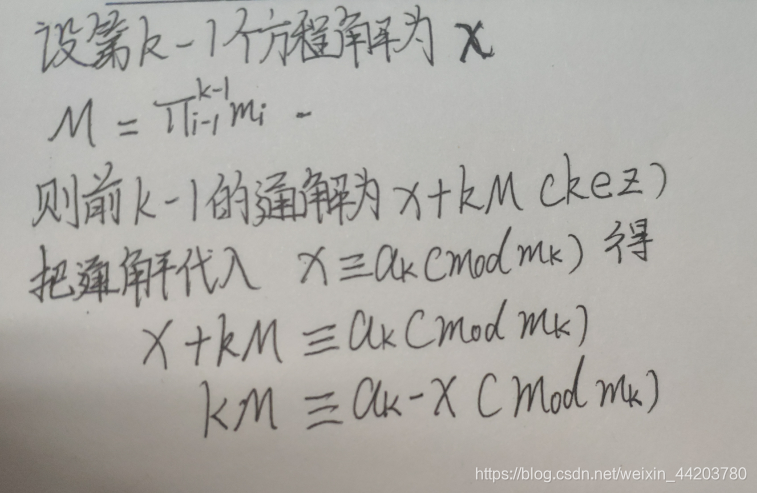 设第k-1个方程解为 x
M = ∏_{i-1}^{k-1} m_i -
则前k-1的通解为 x+kM (k∈z)
把通解代入 x≡a_k (mod m_k) 得
x+kM ≡ a_k (mod m_k)
kM ≡ a_k-x (mod m_k)
https://blog.csdn.net/weixin_44203780